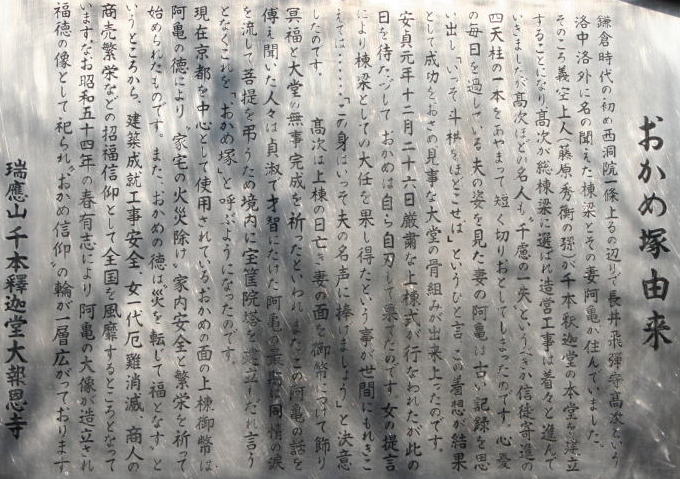 おかめ塚由来
鎌倉時代の初め西洞院一條上るの辺りで長井飛弾守高次という
洛中洛外に名の聞えた棟梁とその妻阿亀が住んでいました。
そのころ義空上人(藤原秀衡の孫)が千本釈迦堂の本堂を建立
することになり高次が総棟梁に選ばれ造営工事は着々と進んで
いきましたが高次ほどの名人も"千慮の一失"というべきか信徒寄進の
四天柱の一本をあやまって短く切りおとしてしまったのです。心憂
の毎日を過している夫の姿を見た妻の阿亀は古い記録を思
い出し「いっそ斗栱をほどこせば」というひと言、この着想が結果
として成功をおさめ見事な大堂の骨組みが出来上ったのです。
安貞元年十二月二十六日厳粛な上棟式が行なわれたが此の
日を待たずしておかめは自ら自刃して果てたのです。女の提言
により棟梁としての大任を果し得たという事が世間にもれきこ
えては・・・・・・「この身はいっそ夫の名声に捧げましょう」と決意
したのです。
高次は上棟の日亡き妻の面を御幣につけて飾り
冥福と大堂の無事完成を祈ったといわれまた、この阿亀の話を
傳え聞いた人々は貞淑で才智にたけた阿亀の最期に同情の涙
を流して菩提を弔うため境内に宝篋院塔を建立しだれ言う
となくこれを"おかめ塚"と呼ぶようになったのです。
現在京都を中心として使用されているおかめの面の上棟御幣は
阿亀の徳により"家宅の火災除け"家内安全と繁栄を祈って
始められたものです。また、おかめの徳は"災を転じて福となす"と
いうところから、建築成就工事安全、女一代厄難消滅、商人の
商売繁栄などの招福信仰として全国を風靡するところとなって
います。なお昭和五十四年の春有志により阿亀の大像が造立され
福徳の像として祀られ"おかめ信仰"の輪が一層広がっております。
瑞應山千本釋迦堂大報恩寺